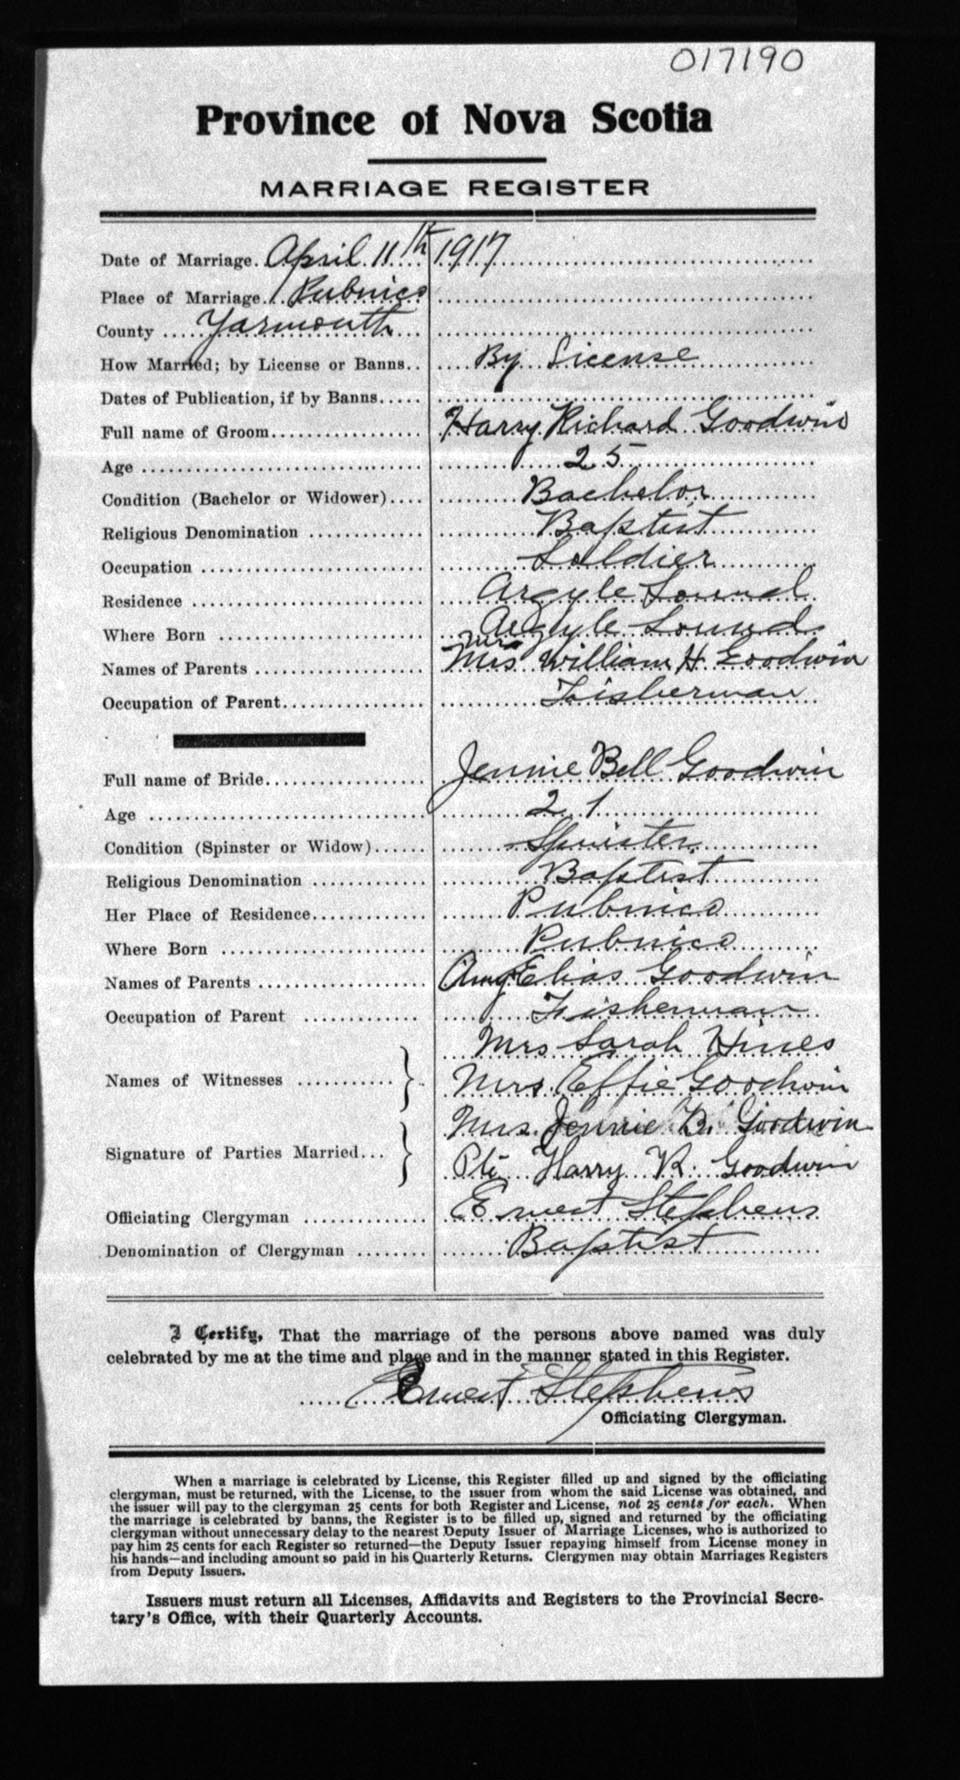 017190
Province of Nova Scotia
MARRIAGE REGISTER
Date of Marriage. April 11th 1917
Place of Marriage. Pubnico
County .... Yarmouth
How Married; by License or Banns.. By License
Dates of Publication, if by Banns.....
Full name of Groom................. Harry Richard Goodwin
Age ................................. 25
Condition (Bachelor or Widower).... Bachelor
Religious Denomination ............. Baptist
Occupation ......................... Soldier
Residence .......................... Argyle Sound
Where Born ........................ Argyle Sound
Names of Parents ................... Mrs William H. Goodwin
Occupation of Parent................ Fisherman
Full name of Bride.................. Jennie Bell Goodwin
Age ................................. 21
Condition (Spinster or Widow)...... Spinster
Religious Denomination ............. Baptist
Her Place of Residence............. Pubnico
Where Born ........................ Pubnico
Names of Parents ................... Elias Goodwin
Occupation of Parent ............. Fisherman
Mrs Sarah Hines
Names of Witnesses ........... } Mrs. Effie Goodwin
Mrs. Jennie B. Goodwin
Signature of Parties Married... } Pte Harry R. Goodwin
Officiating Clergyman ............. Ernest Stephens
Denomination of Clergyman ........ Baptist
I Certify, That the marriage of the persons above named was duly
celebrated by me at the time and place and in the manner stated in this Register.
Ernest Stephens
Officiating Clergyman.
When a marriage is celebrated by License, this Register filled up and signed by the officiating
clergyman, must be returned, with the License, to the issuer from whom the said License was obtained, and
the issuer will pay to the clergyman 25 cents for both Register and License, not 25 cents for each. When
the marriage is celebrated by banns, the Register is to be filled up, signed and returned by the officiating
clergyman without unnecessary delay to the nearest Deputy Issuer of Marriage Licenses, who is authorized to
pay him 25 cents for each Register so returned—the Deputy Issuer repaying himself from License money in
his hands—and including amount so paid in his Quarterly Returns. Clergymen may obtain Marriages Registers
from Deputy Issuers.
Issuers must return all Licenses, Affidavits and Registers to the Provincial Secre-
tary's Office, with their Quarterly Accounts.